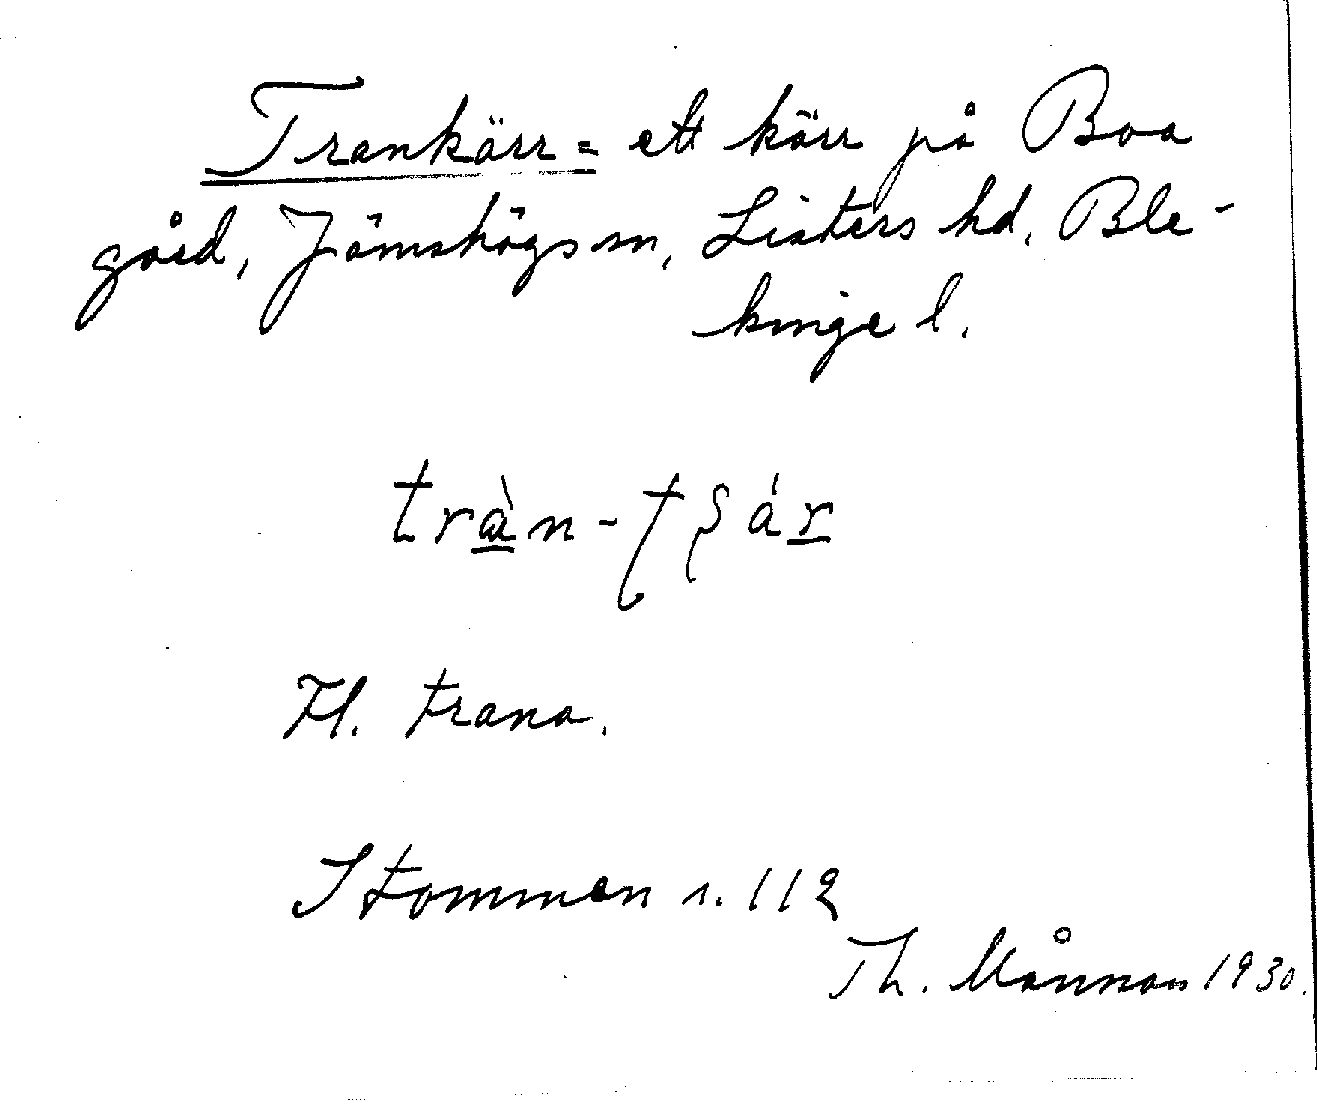 Trankärr = ett kärr på Boa
gård, Jämshögs sn, Listers hd, Ble-
kinge l.
tràn-tʂár
Fl. trana.
Stommen s. 112
Th. Månson 1930.